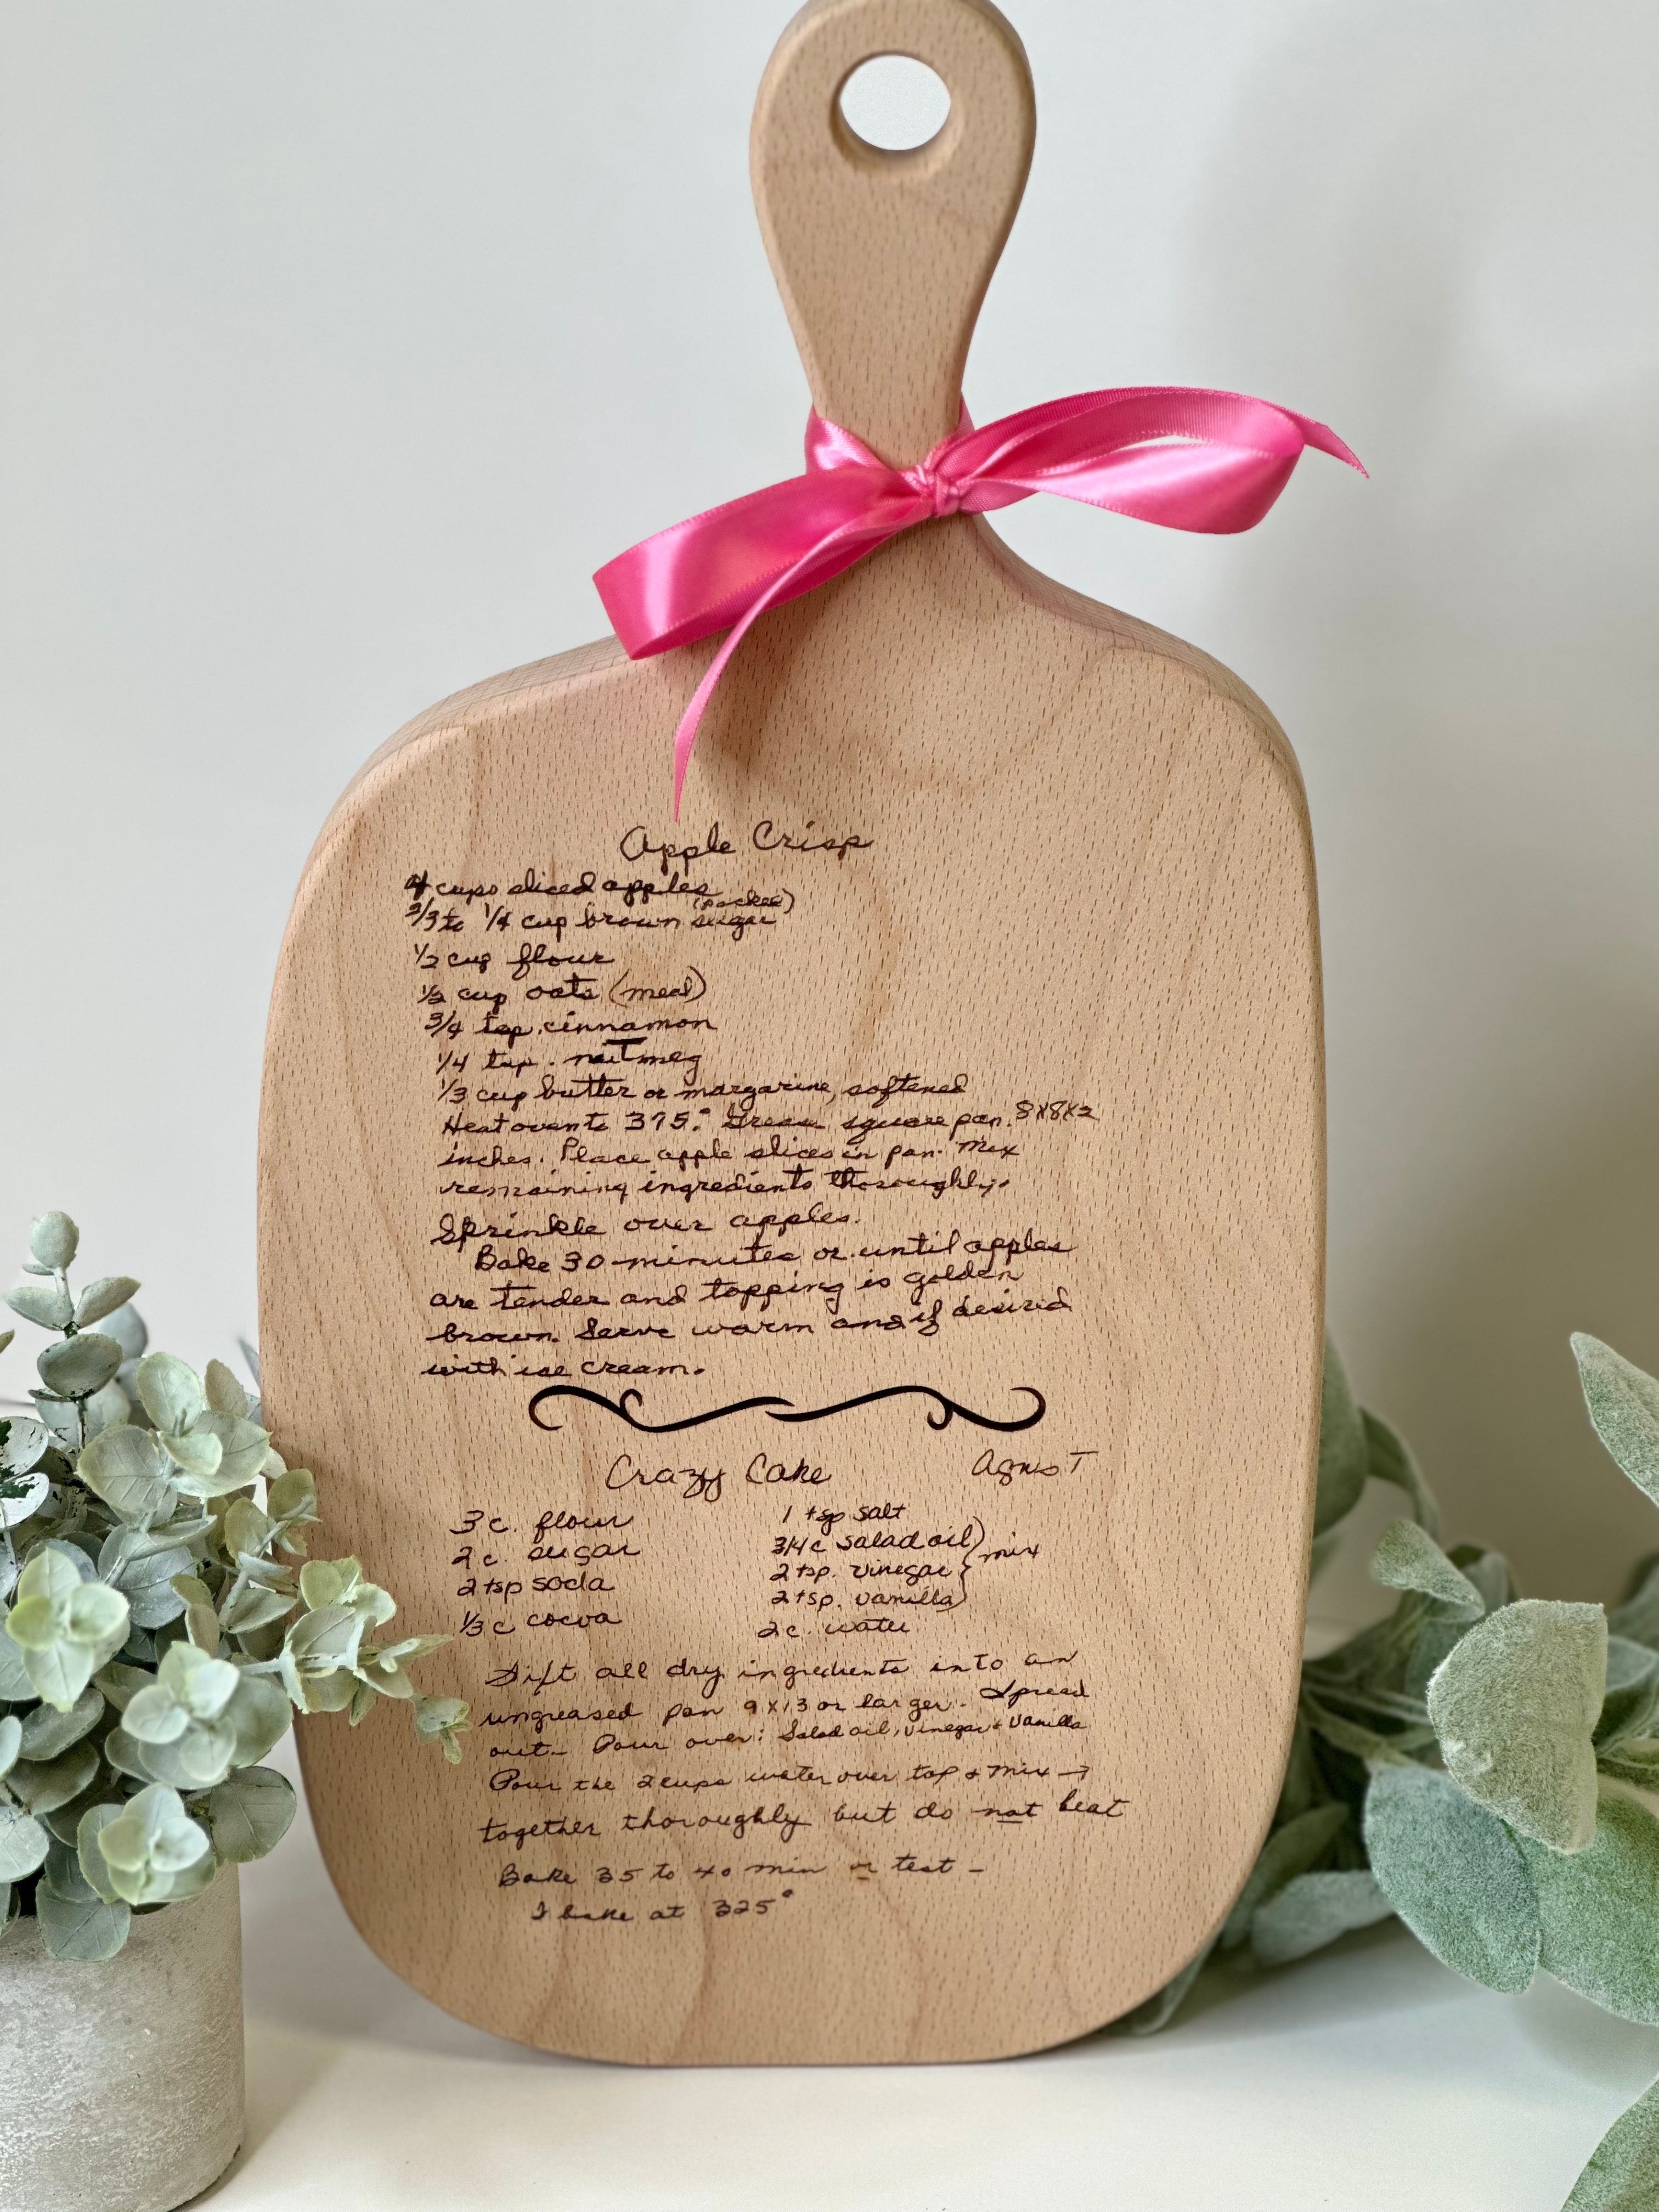 Apple Crisp
4 cups sliced apples
2/3 to 1/4 cup brown sugar (packed)
1/2 cup flour
1/2 cup oats (meal)
3/4 tsp. cinnamon
1/4 tsp. nutmeg
1/3 cup butter or margarine, softened
Heat oven to 375.° Grease square pan. 8x8x2
inches. Place apple slices in pan. Mix
remaining ingredients thoroughly.
Sprinkle over apples.
Bake 30 minutes or until apples
are tender and topping is golden
brown. Serve warm and if desired
with ice cream.
Crazy Cake Agnes T
3 c. flour 1 tsp salt
2 c. sugar 3/4 c salad oil) mix
2 tsp soda 2 tsp. vinegar }
1/3 c cocoa 2 tsp. vanilla)
2 c. water
Sift all dry ingredients into an
ungreased pan 9x13 or larger. Spread
out - Pour over: Salad oil, vinegar & vanilla
Pour the 2 cups water over top & mix →
together thoroughly but do not beat
Bake 35 to 40 min or test -
I bake at 325°